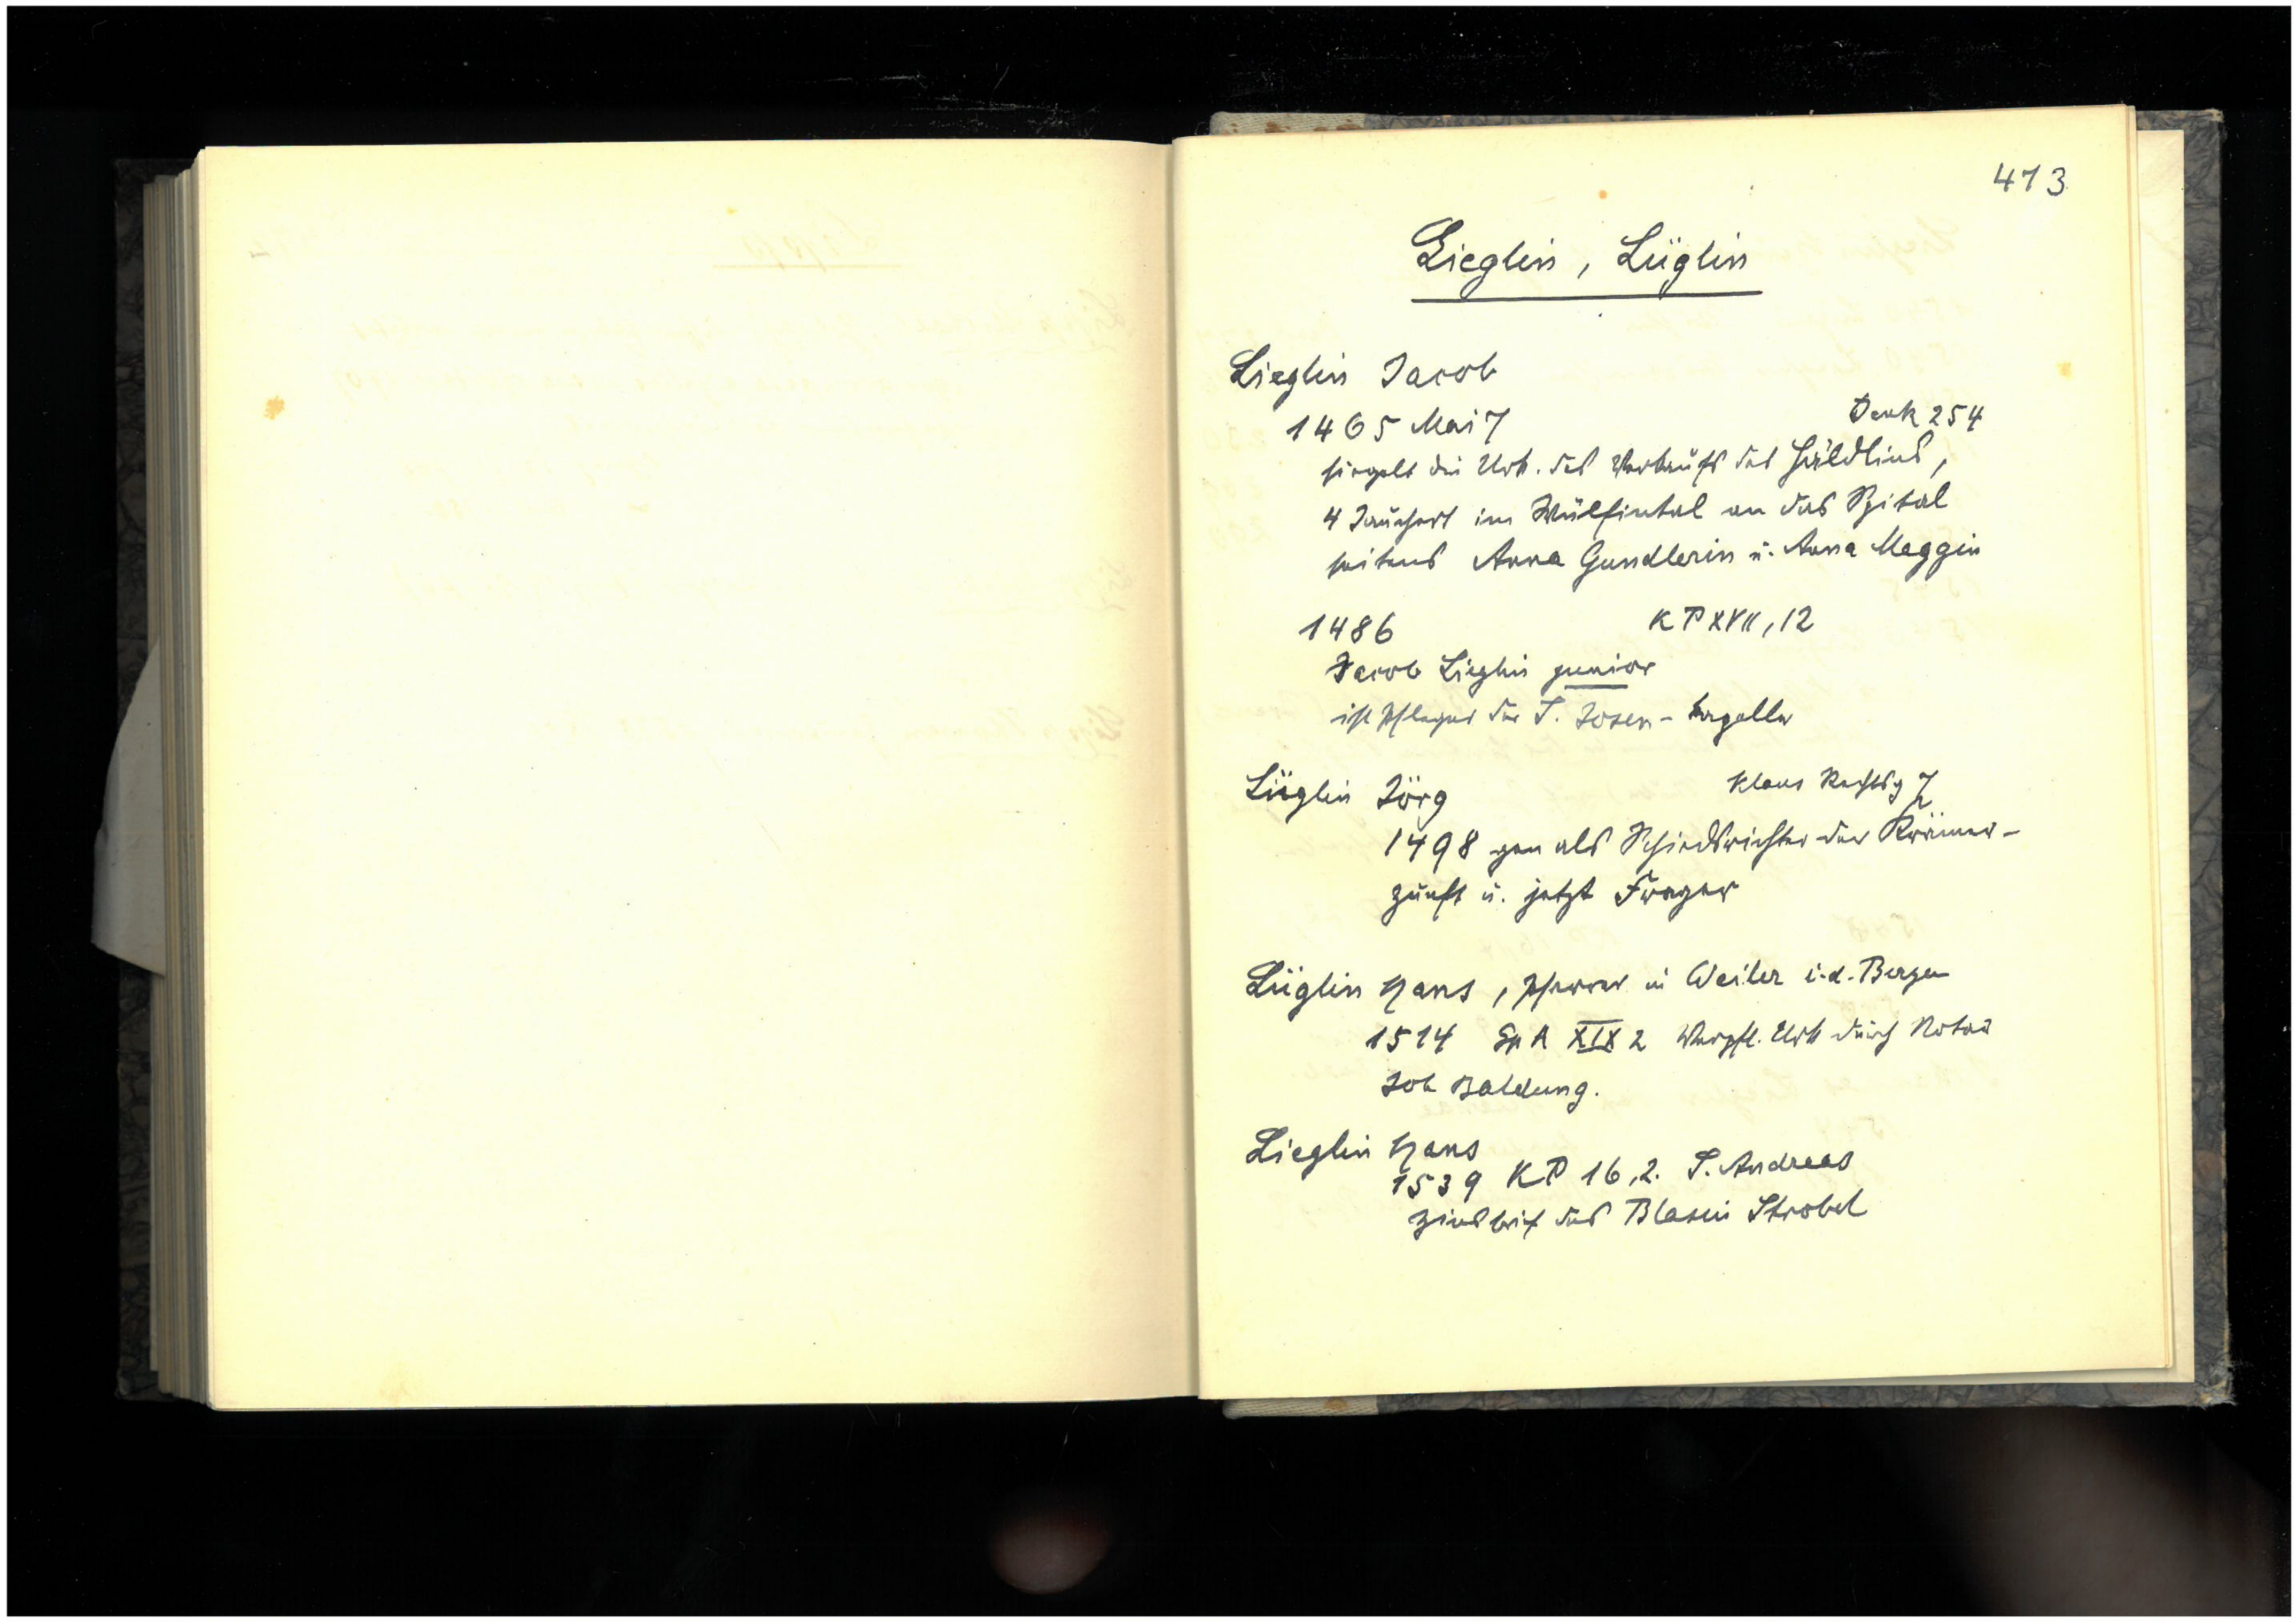 473
Lieglin, Lüglin
Lieglin Jacob
1465 Mai 7 Denk 254
siegelt die Urk. des Verkaufs des Häldlins,
4 Jauchert im Wülfintal an das Spital
seitens Anna Gundlerin u. Anna Maggin
1486 KP XVII, 12
Jacob Lieglin junior
ist Pfleger der S. Josen-Kapelle
Lüglin Jörg Klaus Rechtsg 7
1498 gen als Schiedsrichter der Krämer-
zunft u. jetzt Frager
Lüglin Hans, Pfarrer in Weiler i. d. Bergen
1514 Sp A XIX 2 Verpfl. Urk durch Notar
Joh Baldung.
Lieglin Hans
1539 KP 16,2. S. Andreas
Zinsbrief des Blasin Strobel